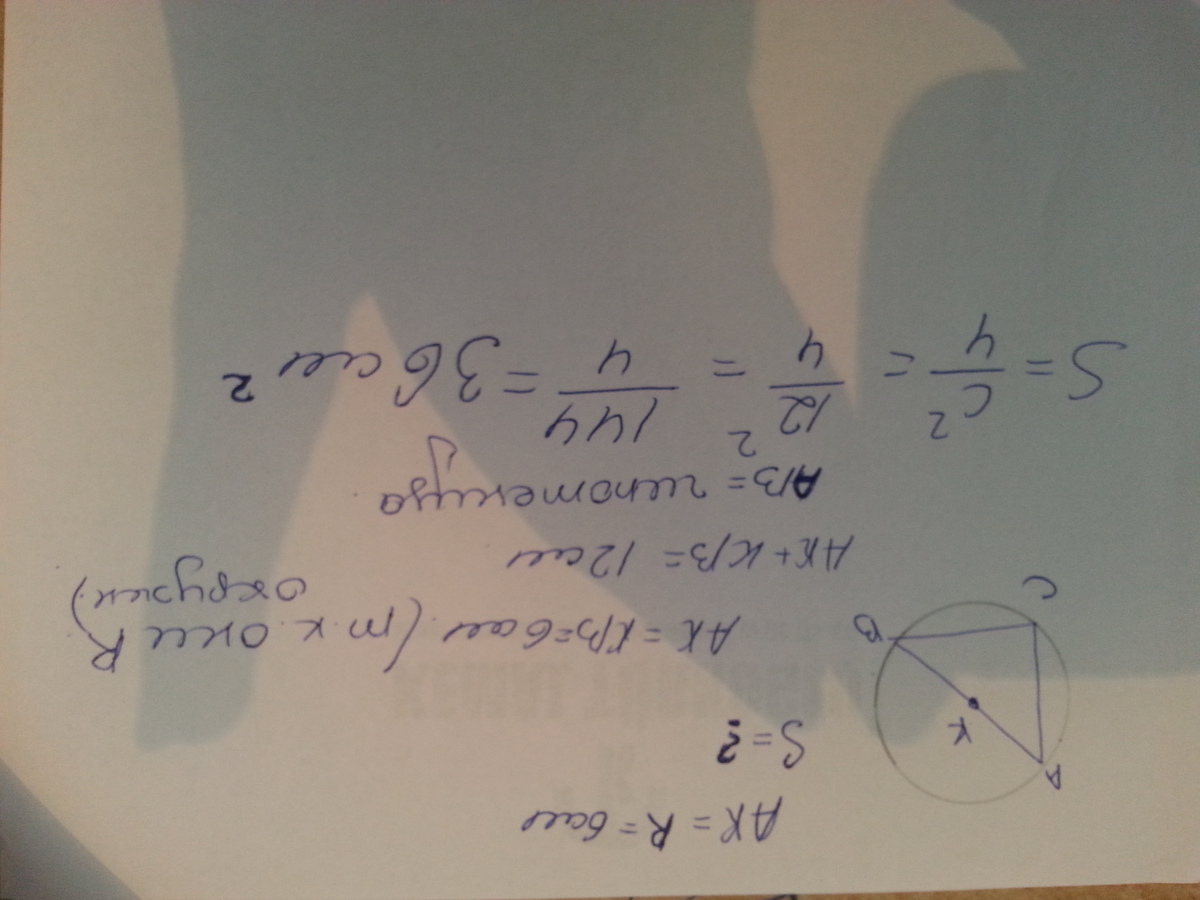 AK = R = 6 см
S = ?
A
K
B
C
AK = KB = 6 см (т.к. они R
окружн.)
AK + KB = 12 см
AB = гипотенуза
S = C² / 4 = 12² / 4 = 144 / 4 = 36 см²